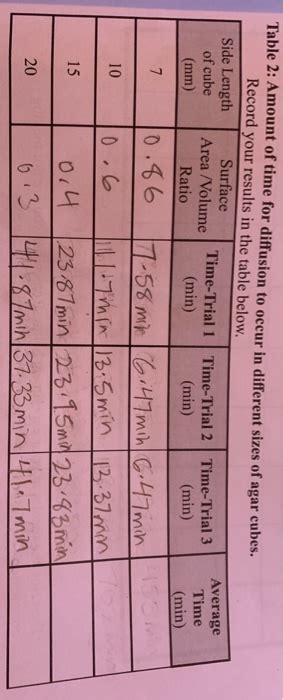 Table 2: Amount of time for diffusion to occur in different sizes of agar cubes.
Record your results in the table below.
Side Length of cube (mm) Surface Area /Volume Ratio Time-Trial 1 (min) Time-Trial 2 (min) Time-Trial 3 (min) Average Time (min)
7 0.86 7.58 min 6.47 min 6.47 min
10 0.6 11.17 min 13.5 min 13.37 min
15 0.4 23.87 min 23.95 min 23.83 min
20 0.3 41.87 min 37.33 min 41.7 min